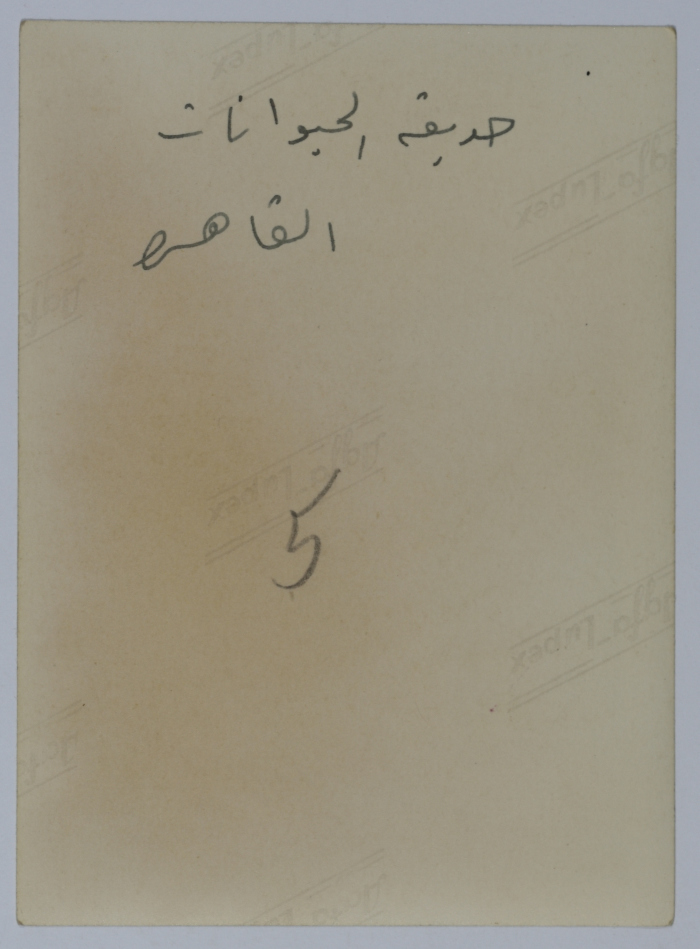 حديقه الحيوانات
القاهره
5
Agfa Lupex
Agfa Lupex
Agfa Lupex
Agfa Lupex